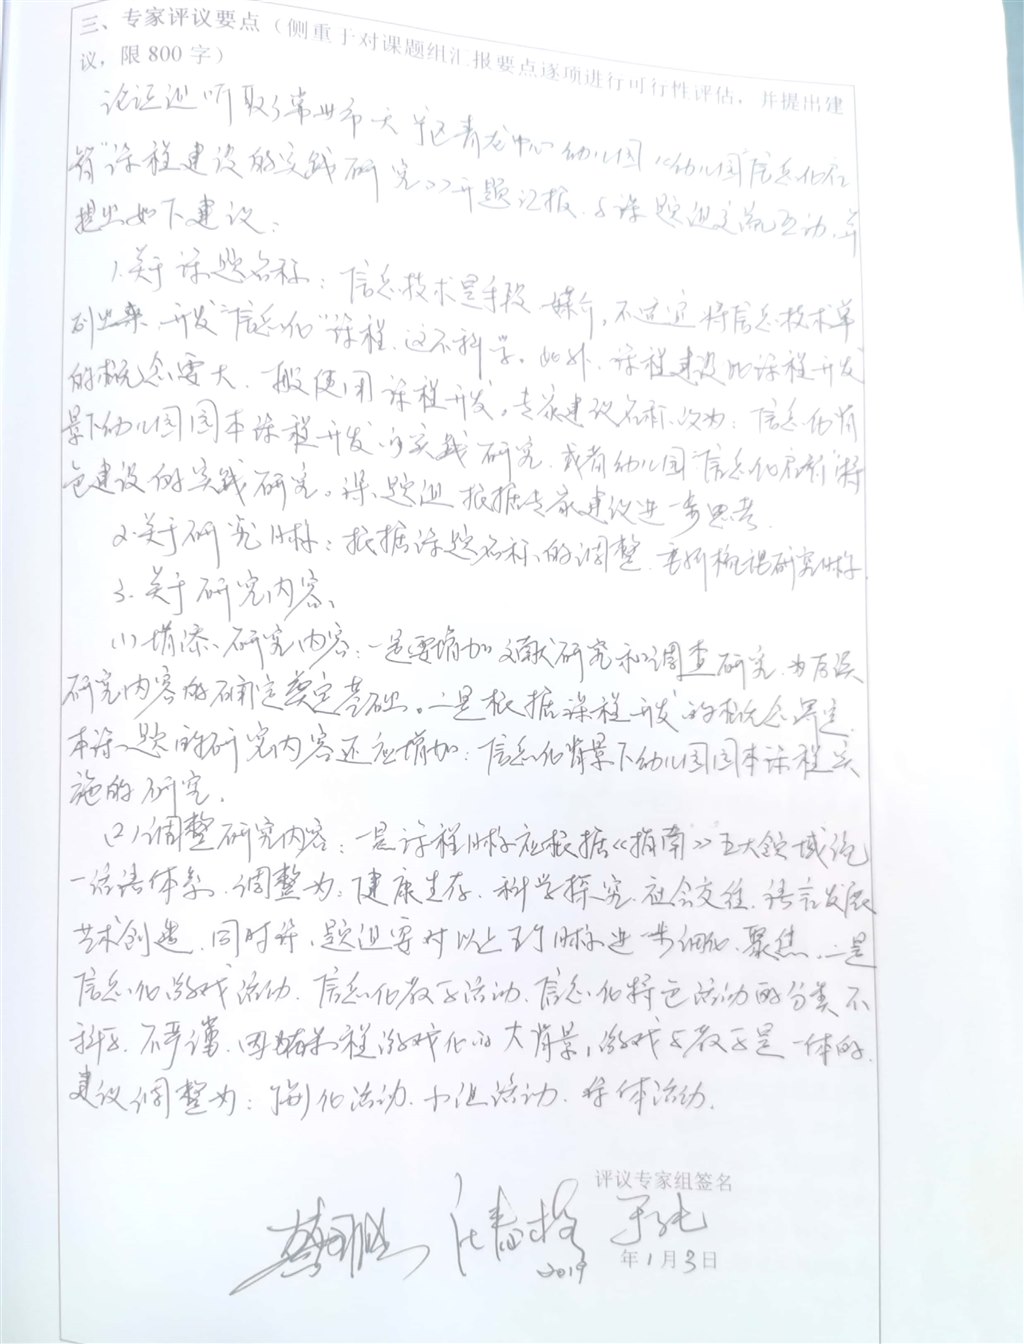 三、专家评议要点（侧重于对课题组汇报要点逐项进行可行性评估，并提出建
议，限 800 字）
论证组听取了常州市天宁区青龙中心幼儿园《幼儿园"信息化启
智"课程建设的实践研究》开题汇报，与课题组交流互动，并
提出如下建议：
1.关于课题名称：信息技术是手段、媒介，不适宜将信息技术单
列出来，开发"信息化"课程，这不科学。此外，课程建设比课程开发
的概念要大，一般使用课程开发，专家建议名称改为：信息化背
景下幼儿园园本课程开发的实践研究，或者幼儿园"信息化启智"特
色建设的实践研究。课题组根据专家建议进一步思考。
2.关于研究目标：根据课题名称的调整，重新梳理研究目标。
3.关于研究内容、
(1)增添研究内容：一是要增加文献研究和调查研究，为后续
研究内容的确定奠定基础。二是根据课程开发的概念界定，
本课题的研究内容还应增加：信息化背景下幼儿园园本课程实
施的研究。
(2)调整研究内容：一是课程目标应根据《指南》五大领域统
一话语体系，调整为：健康生存、科学探究、社会交往、语言发展、
艺术创造，同时，课题组要对以上五个目标进一步细化、聚焦。二是
信息化游戏活动、信息化教学活动、信息化特色活动的分类不
科学、不严谨，因为课程游戏化的大背景，游戏与教学是一体的，
建议调整为：个别化活动、小组活动、集体活动。
评议专家组签名
2019 年 1 月 3 日